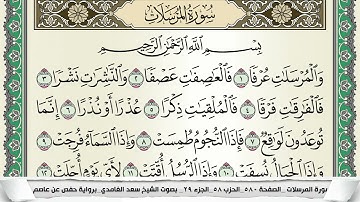 سُورَةُ المُرْسَلَات
بِسْمِ اللَّهِ الرَّحْمَٰنِ الرَّحِيمِ
وَالْمُرْسَلَاتِ عُرْفًا ١ فَالْعَاصِفَاتِ عَصْفًا ٢ وَالنَّاشِرَاتِ نَشْرًا ٣
فَالْفَارِقَاتِ فَرْقًا ٤ فَالْمُلْقِيَاتِ ذِكْرًا ٥ عُذْرًا أَوْ نُذْرًا ٦ إِنَّمَا
تُوعَدُونَ لَوَاقِعٌ ٧ فَإِذَا النُّجُومُ طُمِسَتْ ٨ وَإِذَا السَّمَاءُ فُرِجَتْ ٩
وَإِذَا الْجِبَالُ نُسِفَتْ ١٠ وَإِذَا الرُّسُلُ أُقِّتَتْ ١١ لِأَيِّ يَوْمٍ أُجِّلَتْ ١٢
ورة المرسلات _الصفحة ٥٨٠_الحزب ٥٨_الجزء ٢٩_ بصوت الشيخ سعد الغامدي_برواية حفص عن عاصم